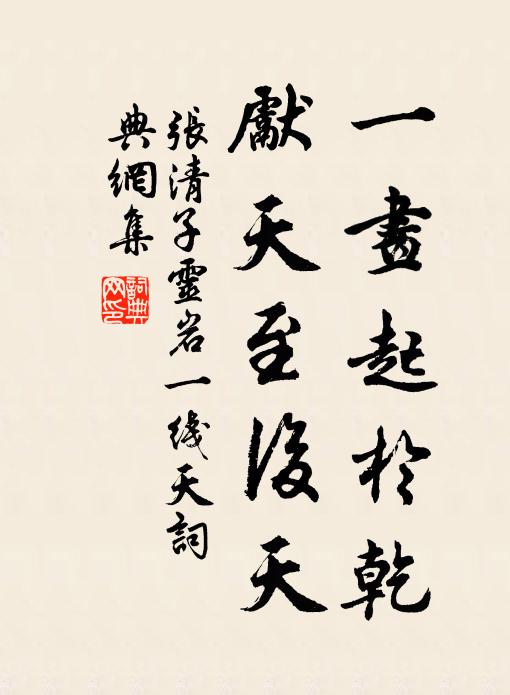 一畫起於乾
獻天至後天
張清子靈岩一綫天詞
典網集
詞典
网印